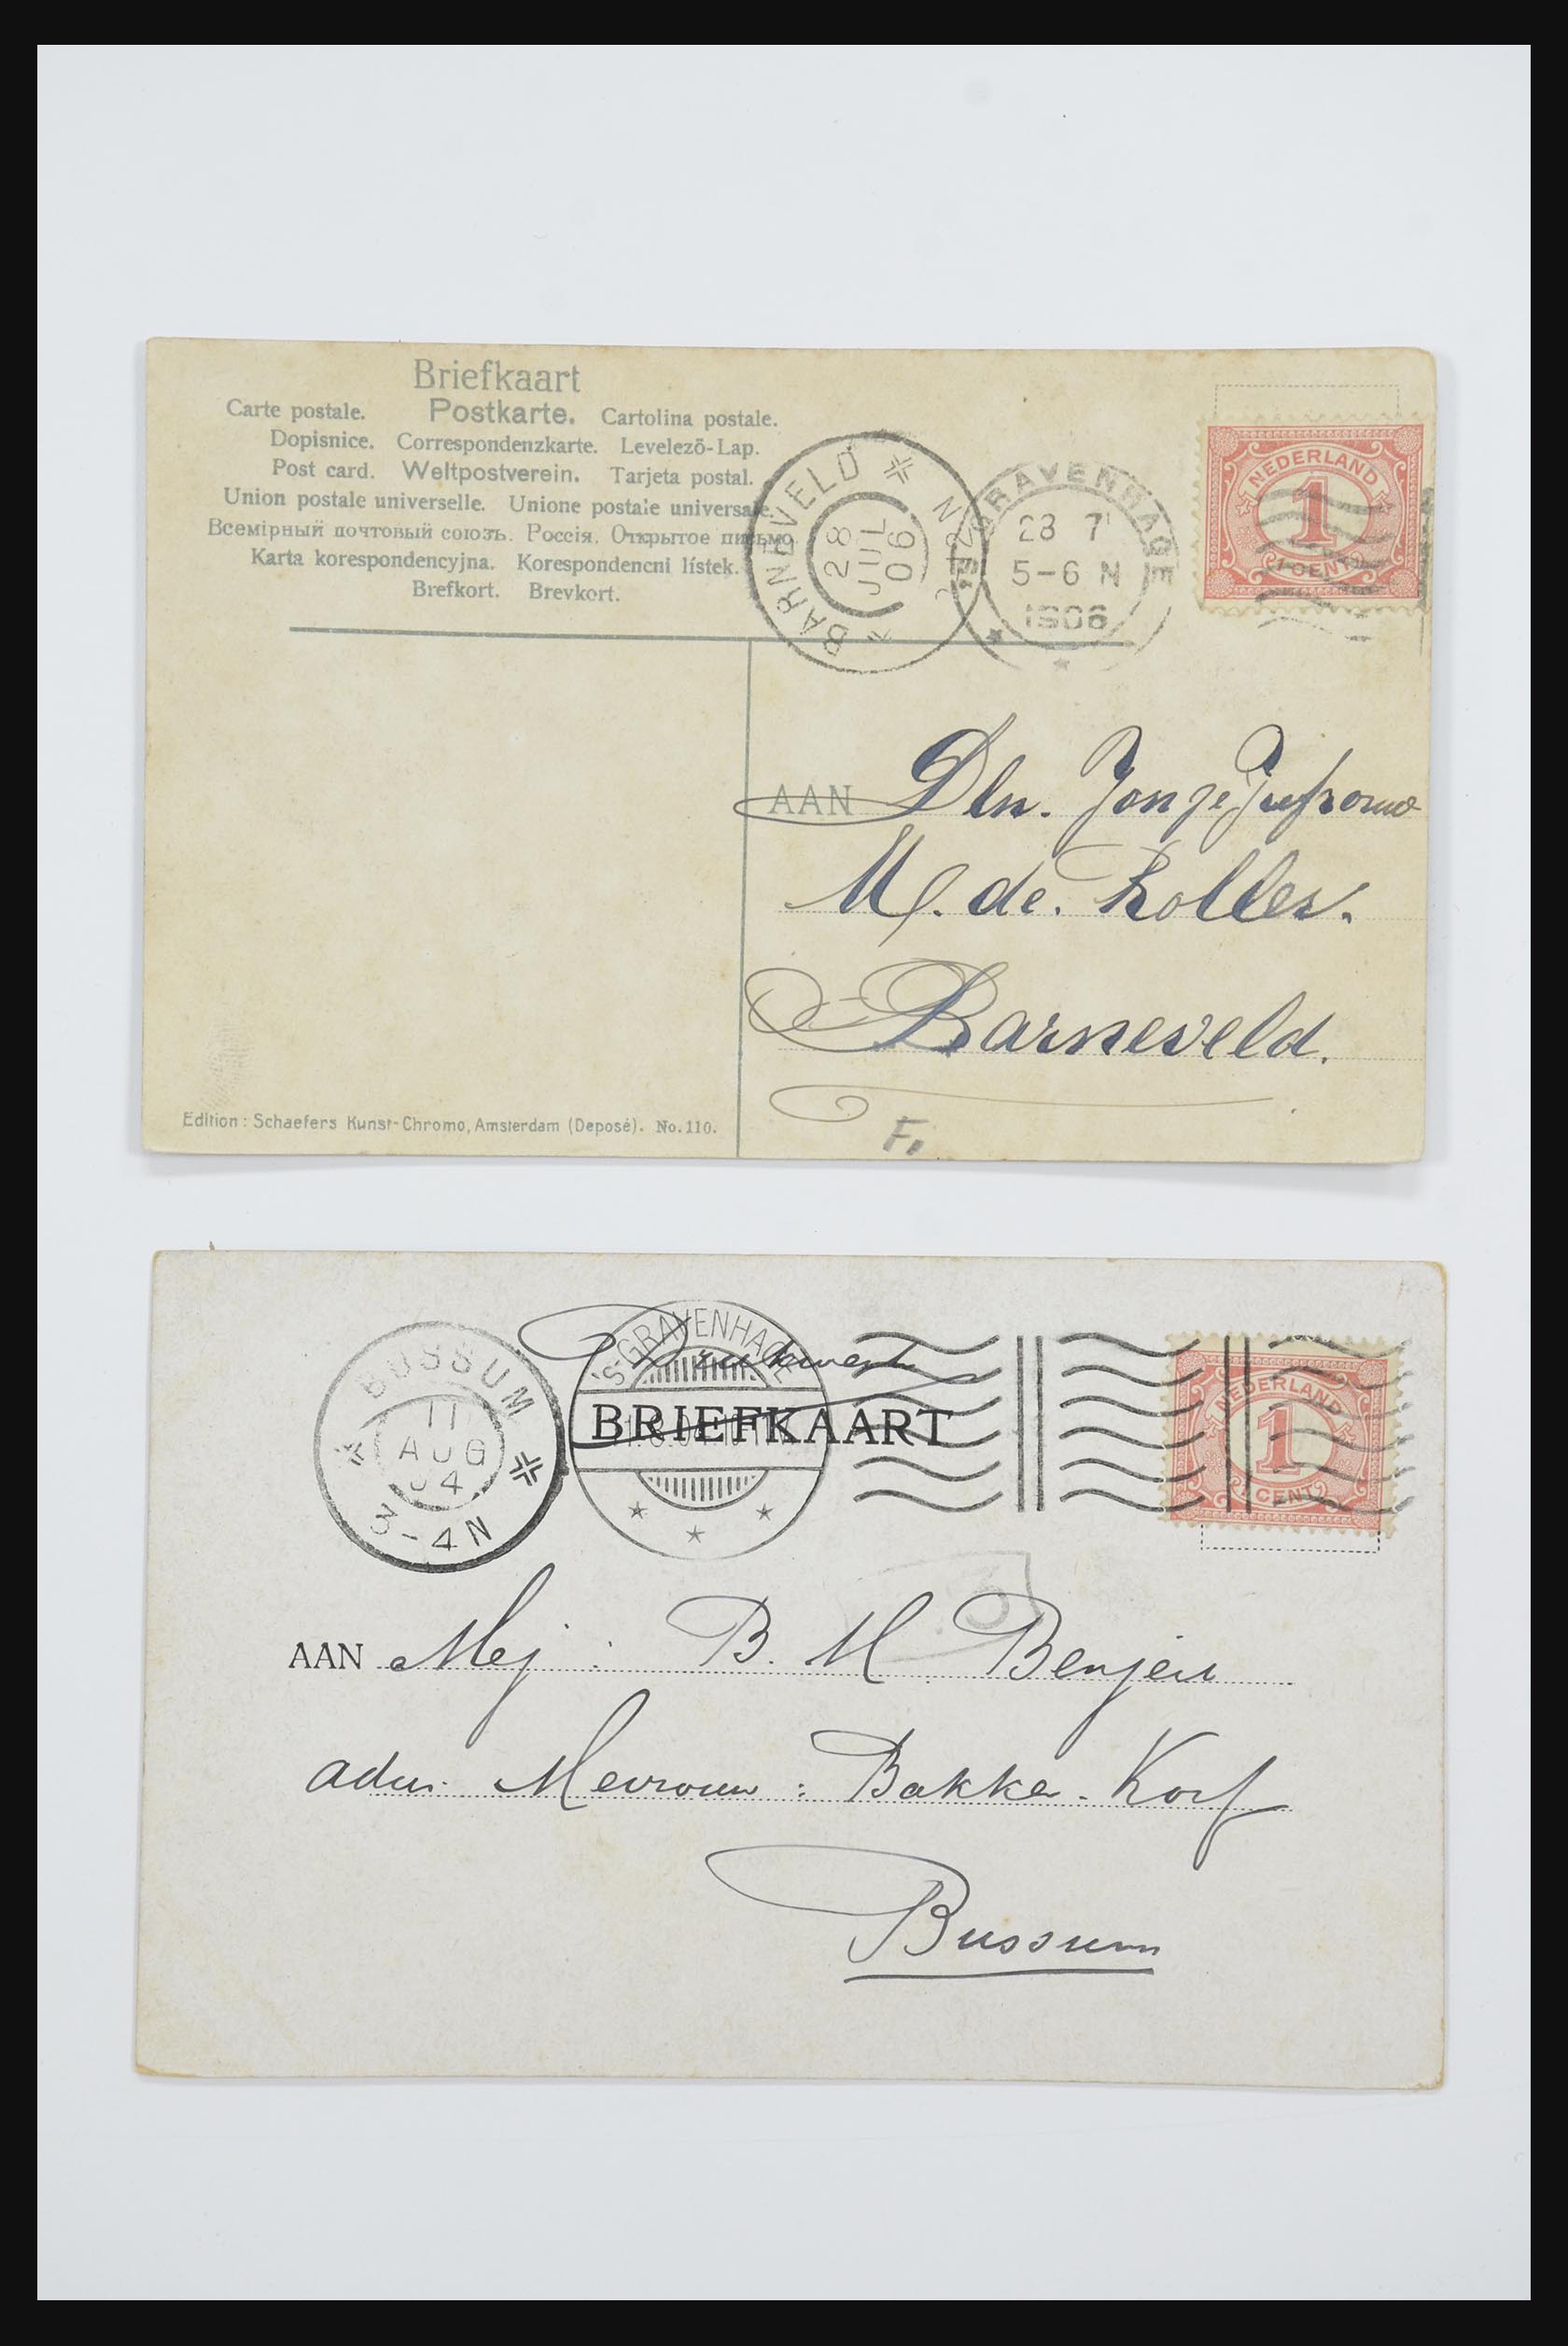 Briefkaart
Carte postale. Postkarte. Cartolina postale.
Dopisnice. Correspondenzkarte. Levelezõ-Lap.
Post card. Weltpostverein. Tarjeta postal.
Union postale universelle. Unione postale universale.
Всемірный почтовый союзъ. Россія. Открытое письмо
Karta korespondencyjna. Korespondencni lístek.
Brefkort. Brevkort.
BARNEVELD
28
JUL
06
GRAVENHAGE
28 7
5-6 N
1906
NEDERLAND
1
1 CENT
AAN Dln. Jonge Jufrouw
M. de. Kolles.
Barneveld.
Edition: Schaefers Kunst-Chromo, Amsterdam (Deposé). No. 110.
F.
BUSSUM
11
AUG
04
3-4N
'S GRAVENHAGE
Drukwerk
BRIEFKAART
NEDERLAND
1
1 CENT
AAN Mej: B. M Benjert
adr. Mevrouw: Bakker-Korf
Bussum